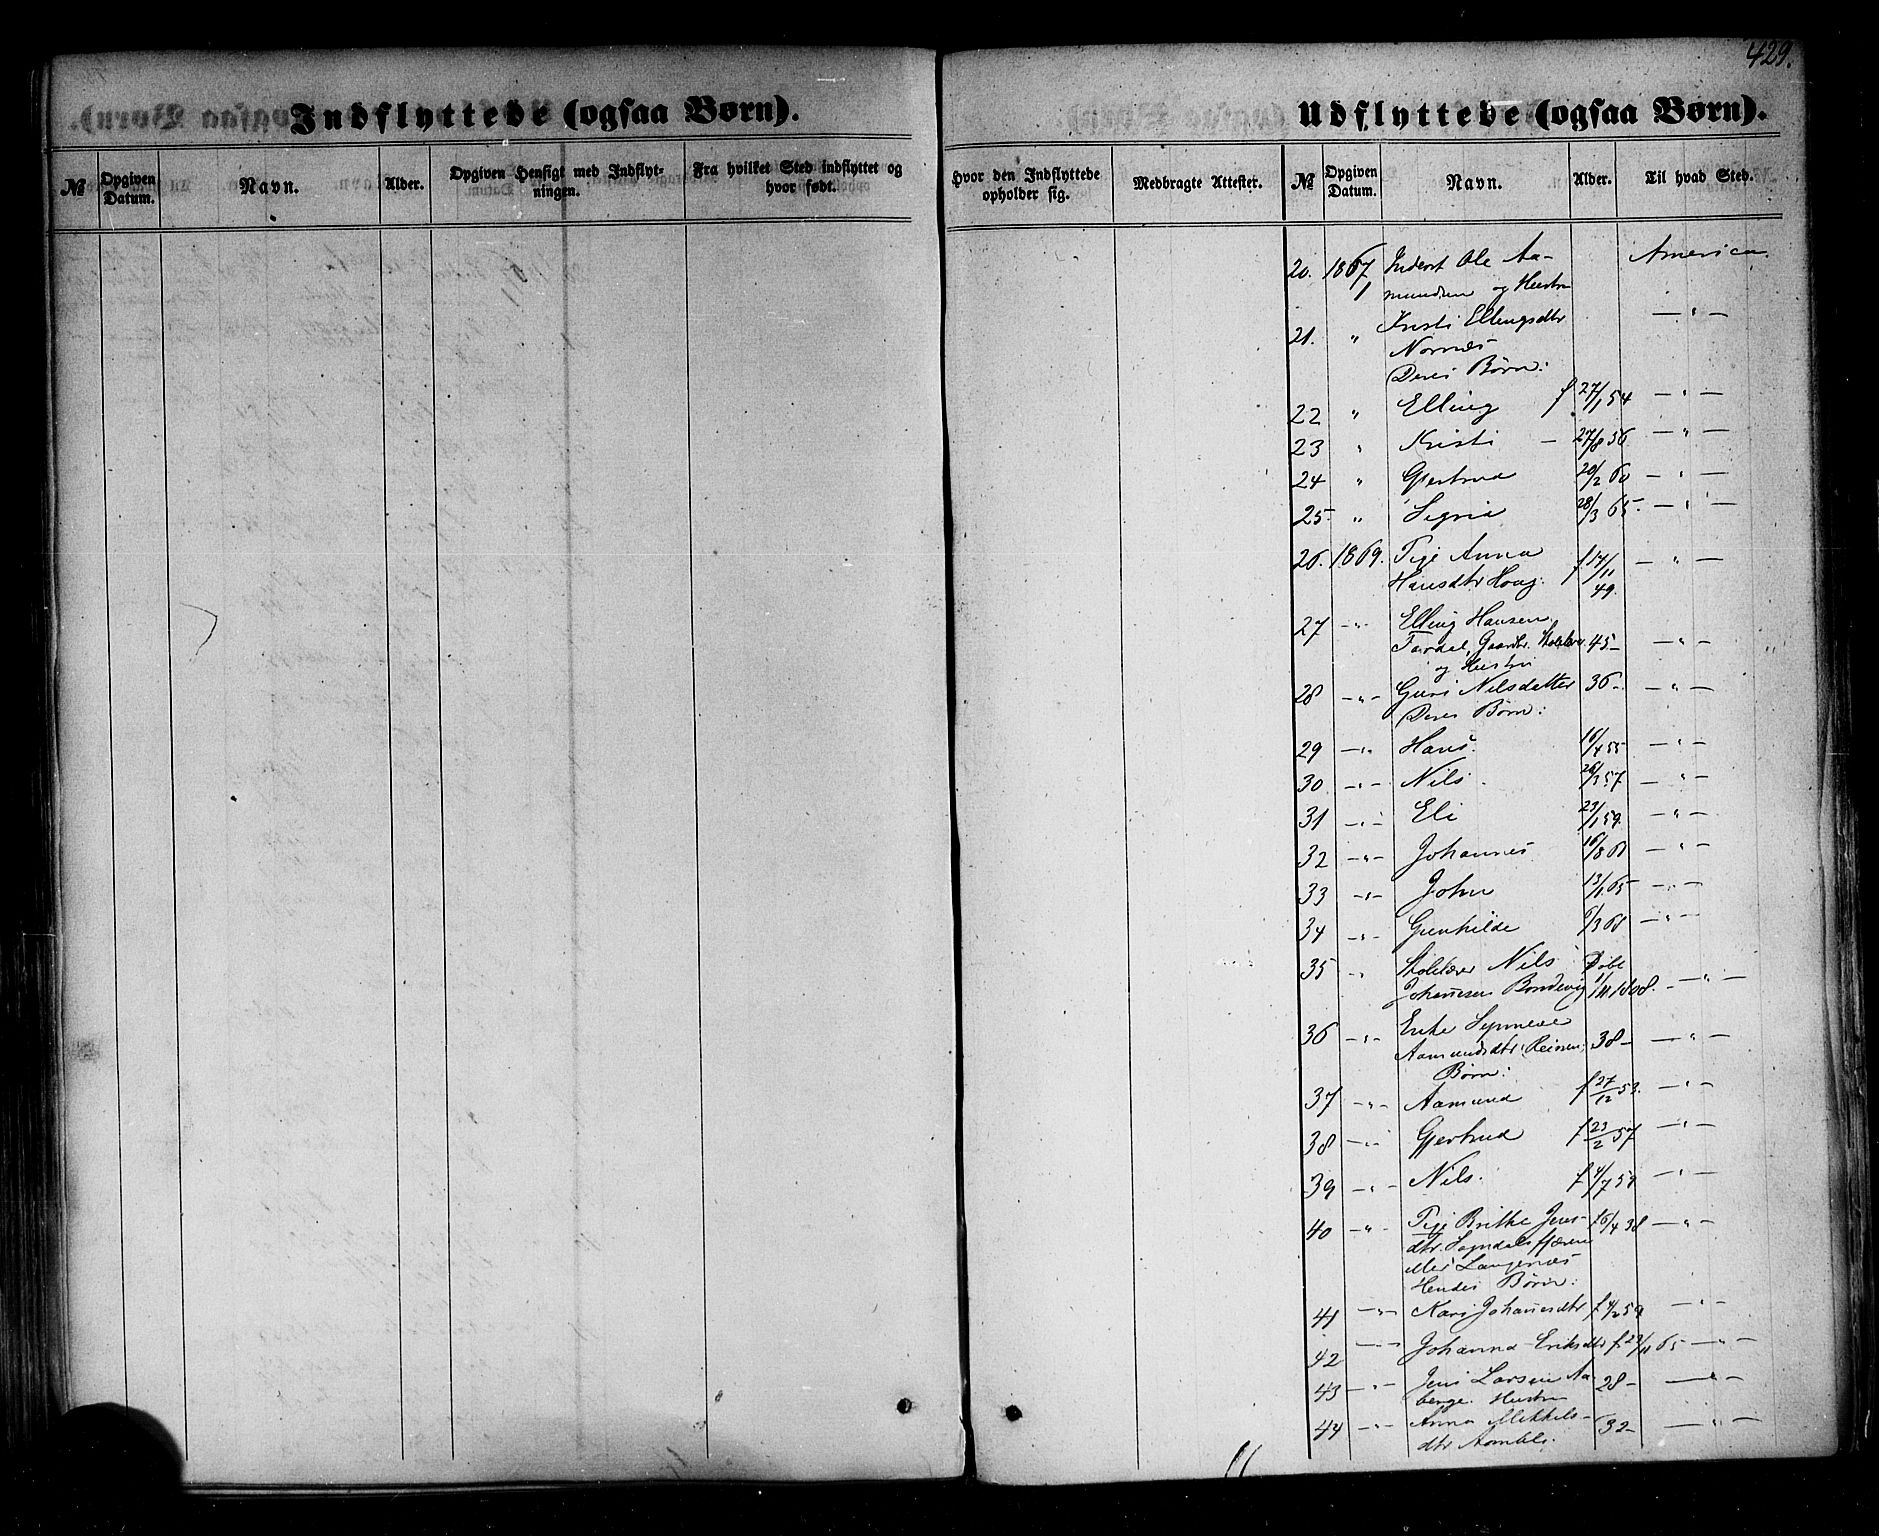 429.
Indflyttede (ogsaa Børn).
№
Opgiven Datum.
Navn.
Alder.
Opgiven Hensigt med Indflytningen.
Fra hvilket Sted indflyttet og hvor født.
Udflyttede (ogsaa Børn).
Hvor den Indflyttede opholder sig.
Medbragte Attester.
№
Opgiven Datum.
Navn.
Alder.
Til hvad Sted.
20. 1867 Inderst Ole Aa- America
1 mundsen og Hustru
21. " Kristi Ellingsdtr — " —
Nornæs
Deres Børn:
22 " Elling f 27/1 54 — " —
23 " Kristi — 27/8 56 — " —
24 " Gjertrud 20/2 60 — " —
25 " Signi 28/3 65 — " —
26. 1869. Pige Anna f 17/11 49. — " —
Hansdtr Houg.
27 — " — Elling Hansen
Fardal, Gaardbr. 45 — " —
og Hustru
28 — " — Guri Nilsdatter 36 — " —
Deres Børn:
29 — " — Hans. 16/4 55 — " —
30 — " — Nils. 57 — " —
31 — " — Eli 23/1 59. — " —
32 — " — Johannes 16/8 61 — " —
33 — " — John 13/1 65 — " —
34 — " — Gunhilde 6/3 68 — " —
35 " Skolelærer Nils Døbt
Johannesen Bondevig 1808. — " —
36 — " — Enke Synneve
Aamundsdtr 38 — — " —
Børn:
37 — " — Aamund f 27/12 53. — " —
38 — " — Gjertrud f 23/2 57 — " —
39 — " — Nils. f 4/7 59 — " —
40 — " — Pige Brithe Jens- f 6/4 38 — " —
dtr. Sogndalsfjæren
eller Langenæs
Hendes Børn:
41 — " — Kari Johannesdtr f 4/2 59 — " —
42 — " — Johanna Eriksdtr f. 23/11 65 — " —
43 — " — Jens Larsen Aa- 28 — — " —
berge. Hustru
44 — " — Anna Mikkels- 32 — — " —
dtr Aamble.